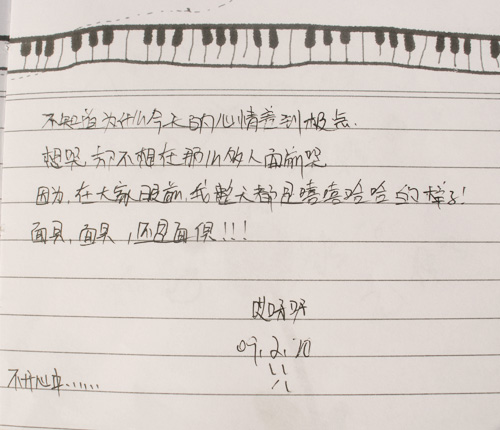 不知道为什么今天的心情差到极点.
想哭,却不想在那么多人面前哭
因为,在大家眼前,我整天都是嘻嘻哈哈的样子!
面具,面具,还是面俱!!!
哎呀呀
09.2.10
不开心中......